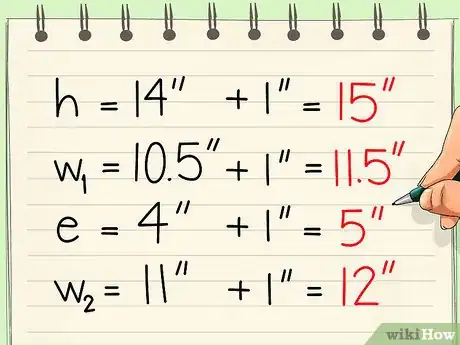 h = 14" + 1" = 15"
w₁ = 10.5" + 1" = 11.5"
e = 4" + 1" = 5"
w₂ = 11" + 1" = 12"
wikiHow